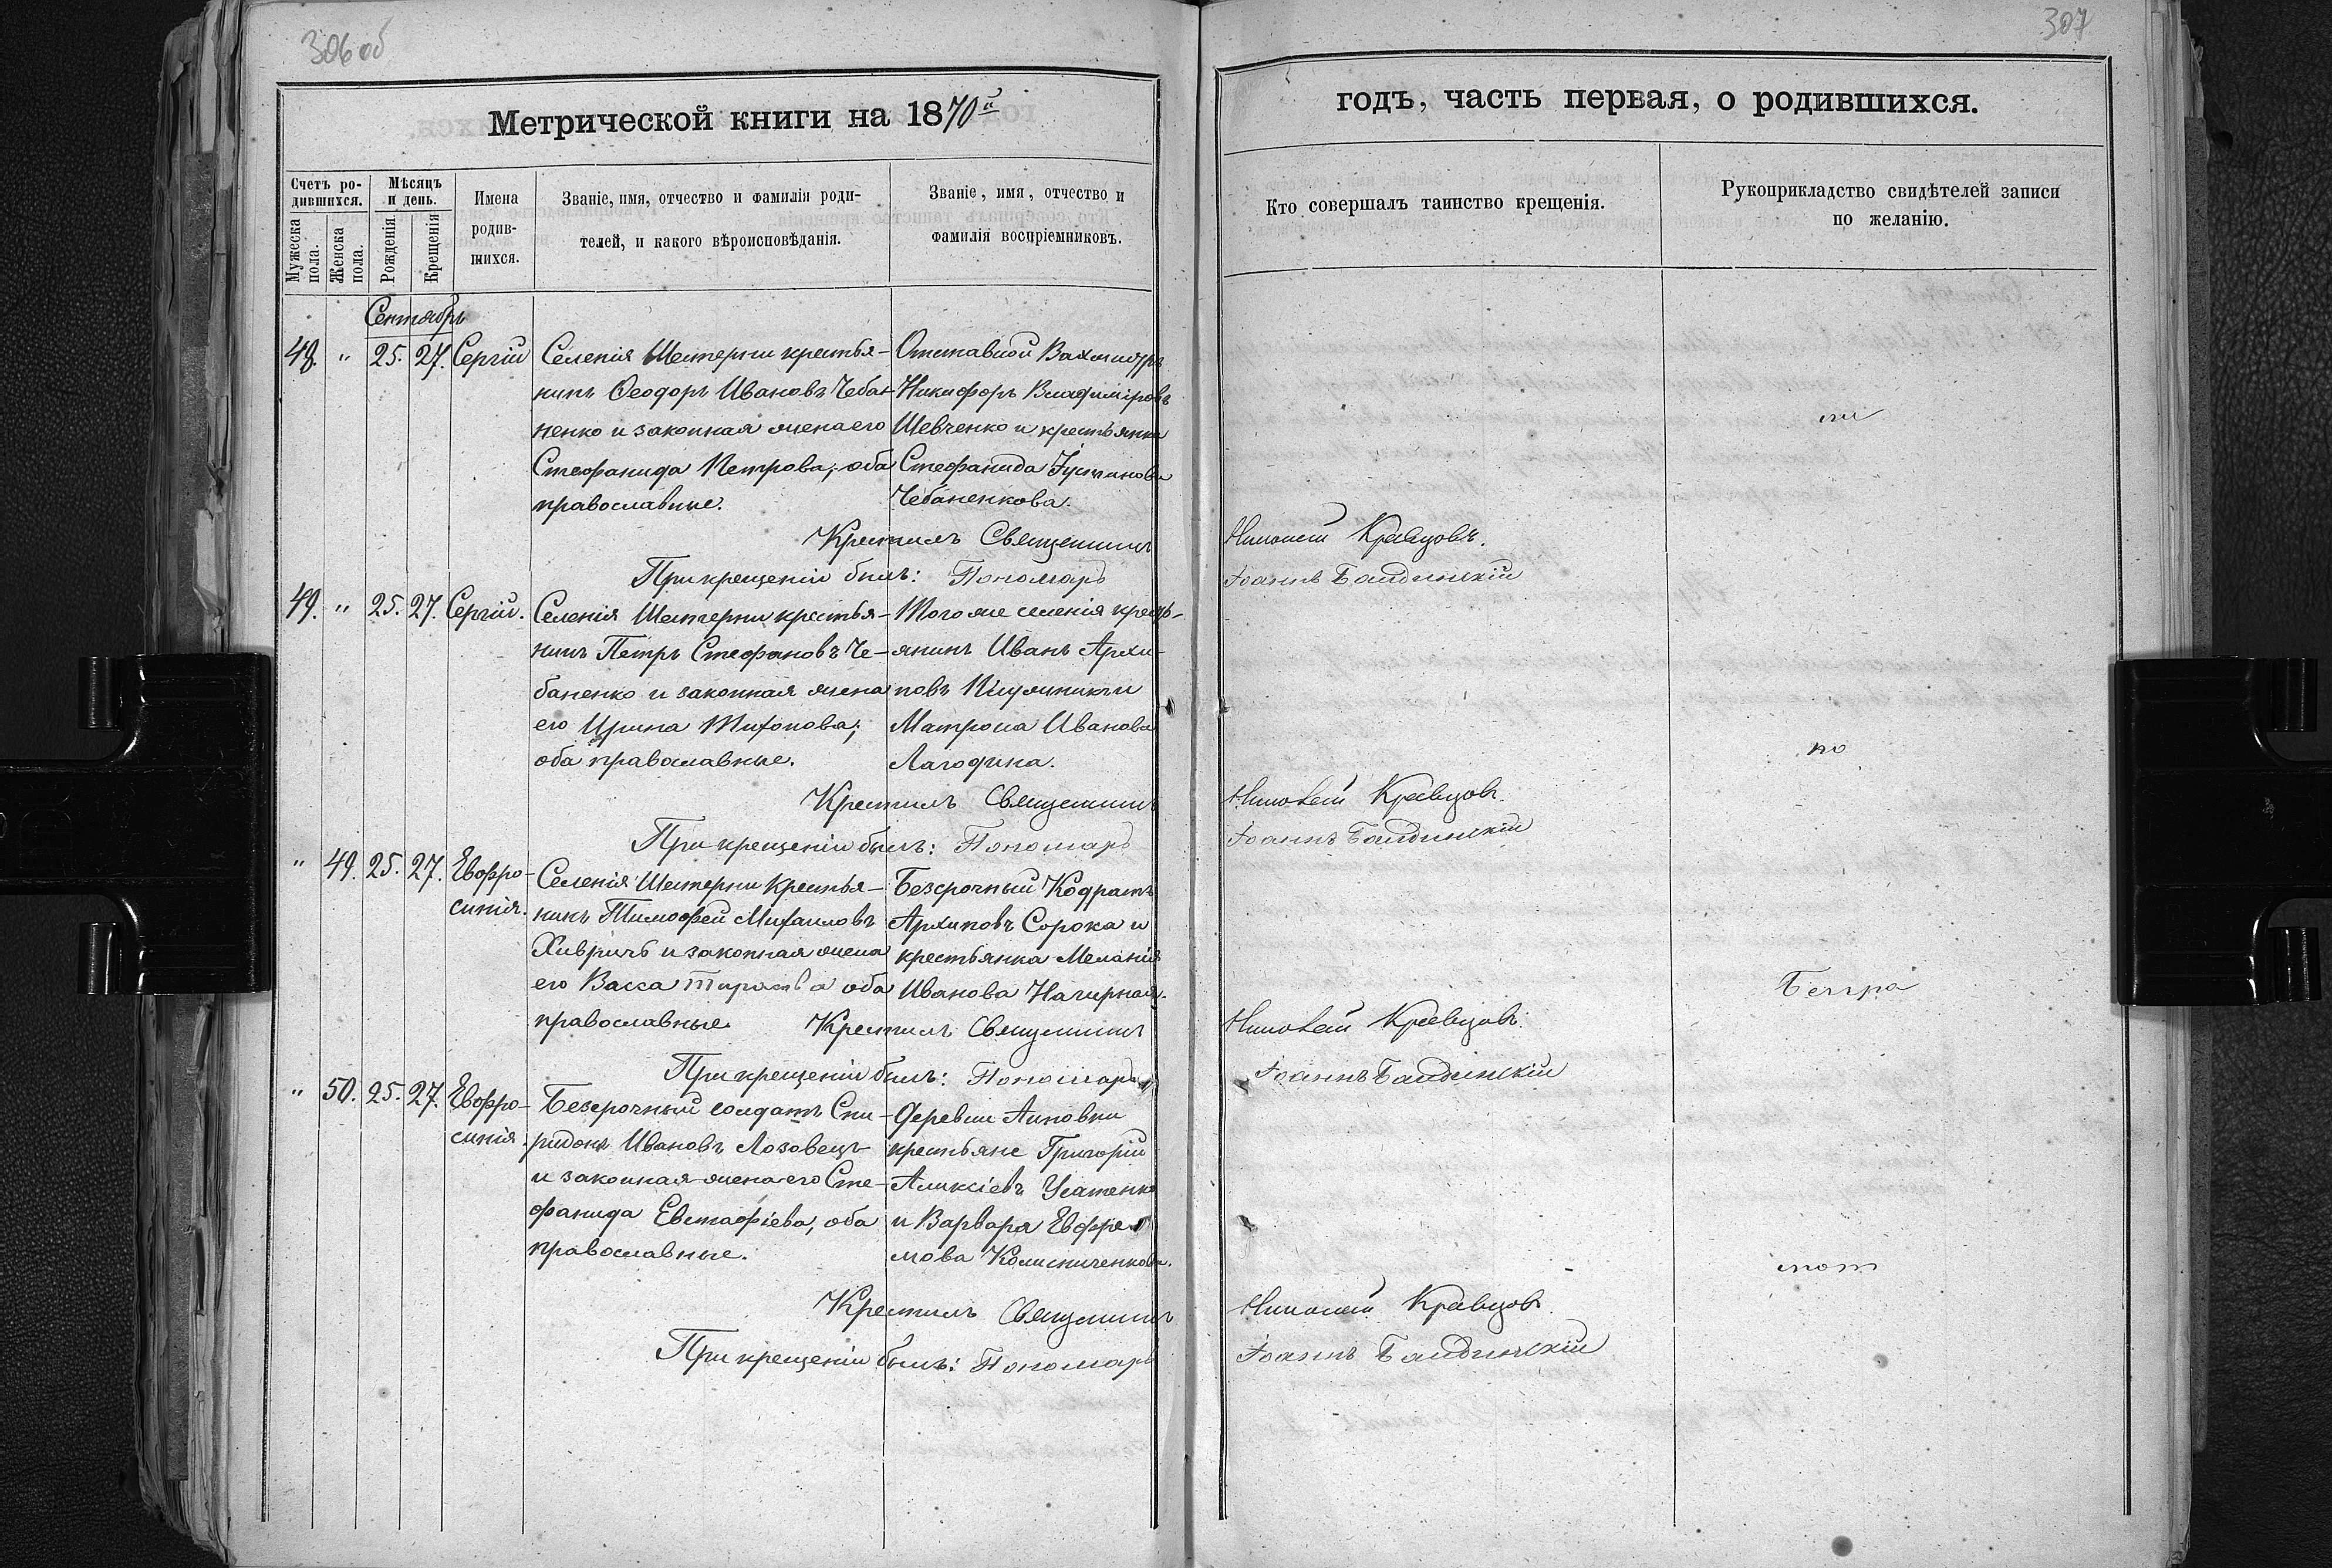 306 об
307
Метрической книги на 1870й
годъ, часть первая, о родившихся.
Счетъ родившихся.
Мужеска пола.
Женска пола.
Мѣсяцъ и день.
Рожденія
Крещенія
Имена родив-
шихся.
Званіе, имя, отчество и фамилія роди-
телей, и какого вѣроисповѣданія.
Званіе, имя, отчество и
фамилія воспріемниковъ.
Кто совершалъ таинство крещенія.
Рукоприкладство свидѣтелей записи
по желанію.
Сентябрь
48. " 25. 27. Сергій
Селенія Шестерни крестья-
нинъ Ѳеодоръ Ивановъ Чеба-
ненко и законная жена его
Стефанида Петрова; оба
православные.
Отставной Вахмистръ
Никифоръ Владиміровъ
Шевченко и крестьянка
Стефанида Іустинова
Чебаненкова.
Крестилъ Священникъ Николай Кравцовъ.
При крещеніи былъ: Пономарь Іоаннъ
49. " 25. 27. Сергій.
Селенія Шестерни крестья-
нинъ Петръ Стефановъ Че-
баненко и законная жена
его Ирина Тихонова;
оба православные.
Того же селенія кресть-
янинъ Иванъ Архи-
повъ и
Матрона Иванова
Лагодина.
по
Крестилъ Священникъ Николай Кравцовъ.
При крещеніи былъ: Пономарь Іоаннъ
" 49. 25. 27. Евфро-
синія.
Селенія Шестерни крестья-
нинъ Тимофей Михаиловъ
Хивричъ и законная жена
его Васса Тарасова оба
православные.
Безсрочный Кодратъ
Архиповъ Сорока и
крестьянка Меланія
Иванова Нагирная.
Крестилъ Священникъ Николай Кравцовъ.
При крещеніи былъ: Пономарь Іоаннъ
" 50. 25. 27. Евфро-
синія.
Безсрочный солдатъ Спи-
ридонъ Ивановъ Лозовецъ
и законная жена его Сте-
фанида Евстафіева, оба
православные.
Деревни Аиновки
крестьяне Григорій
Алексіевъ Усатенко
и Варвара Евфре-
мова Колисниченкова.
Крестилъ Священникъ Николай Кравцовъ.
При крещеніи былъ: Пономарь Іоаннъ